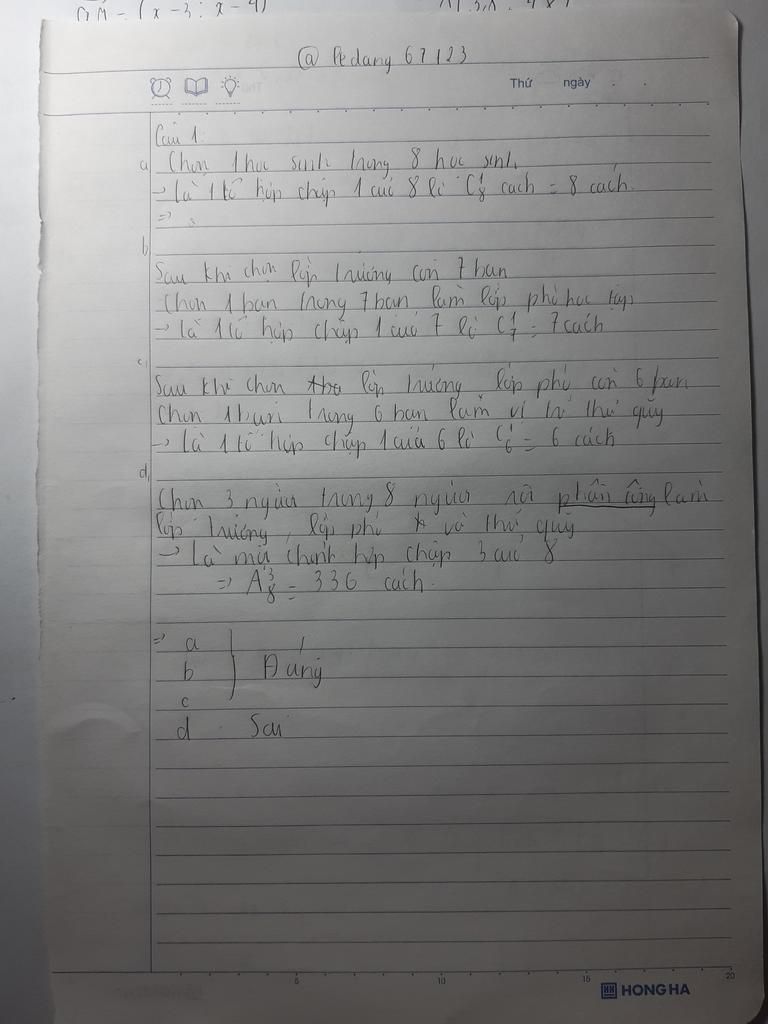 @ Pedang 67123
Thứ ngày
Câu 1:
a Chọn 1 học sinh trong 8 học sinh
→ là 1 tổ hợp chập 1 của 8 là C¹₈ cách = 8 cách.
=>
b
Sau khi chọn lớp trưởng còn 7 bạn
Chọn 1 bạn trong 7 bạn làm lớp phó học tập
→ là 1 tổ hợp chập 1 của 7 là C¹₇ = 7 cách
c,
Sau khi chọn lớp trưởng lớp phó còn 6 bạn
Chọn 1 bạn trong 6 bạn làm vị trí thủ quỹ
→ là 1 tổ hợp chập 1 của 6 là C¹₆ = 6 cách
d,
Chọn 3 người trong 8 người rồi phân công làm
lớp trưởng, lớp phó và thủ quỹ
→ là một chỉnh hợp chập 3 của 8
=> A³₈ = 336 cách.
=> a
b Đúng
c
d Sai
5 10 15 20
HH HONG HA